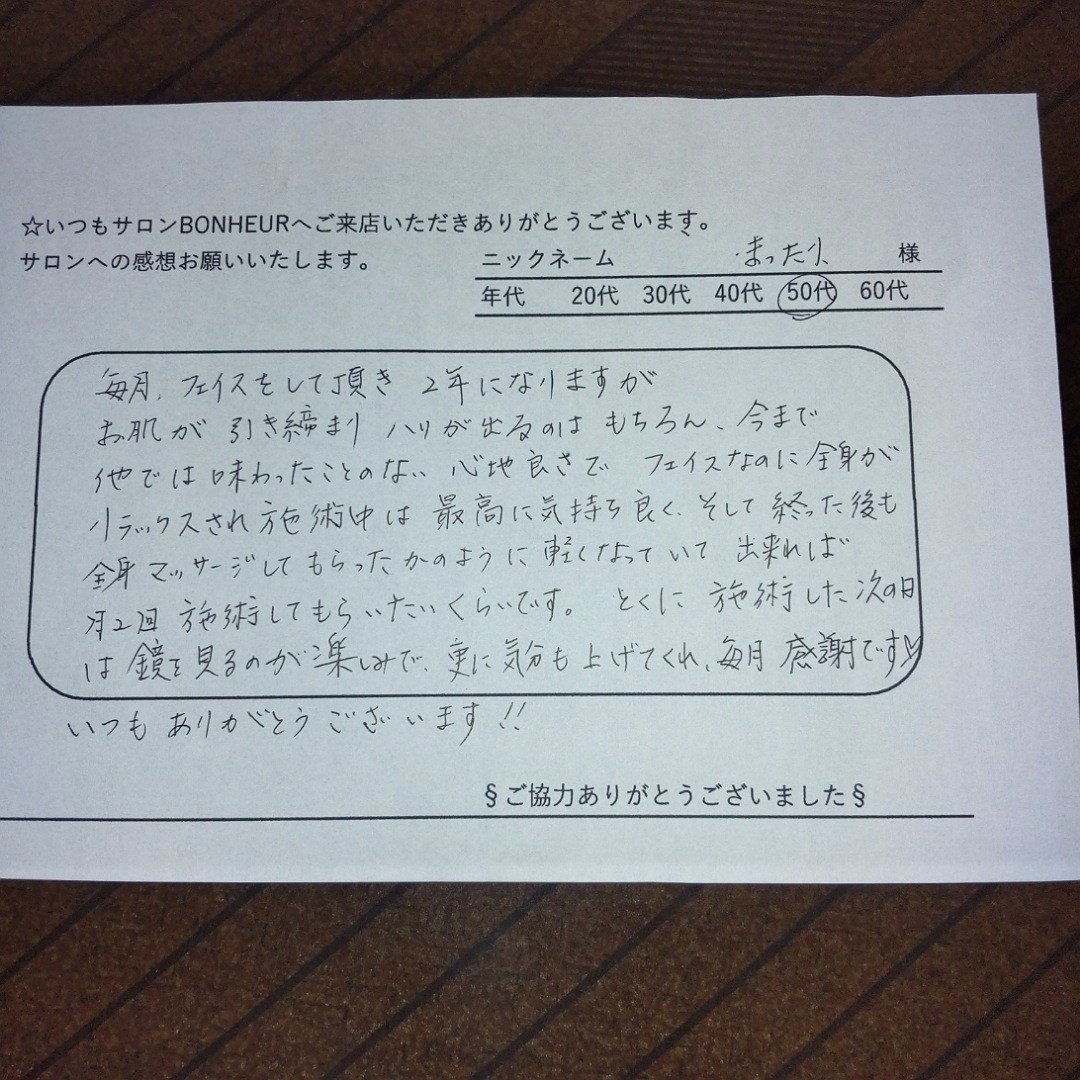 ☆いつもサロンBONHEURへご来店いただきありがとうございます。
サロンへの感想お願いいたします。
ニックネーム まったり 様
年代 20代 30代 40代 50代 60代
毎月、フェイスをして頂き 2年になりますが
お肌が 引き締まり ハリが出るのは もちろん、今まで
他では 味わったことのない 心地良さで フェイスなのに 全身が
リラックスされ 施術中は 最高に気持ち良く、そして 終った後も
全身マッサージしてもらったかのように 軽くなっていて 出来れば
月2回 施術してもらいたいくらいです。 とくに 施術した次の日
は 鏡を見るのが楽しみで、更に気分も上げてくれ、毎月 感謝です♡
いつも ありがとうございます!!
§ご協力ありがとうございました§